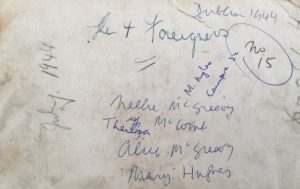 Dublin 1944
The 4 Foreigners
No
15
July 1944
M. Hughes
Nellie McGreevy
Theresa McCourt
Alice McGreevy
Mary Hughes